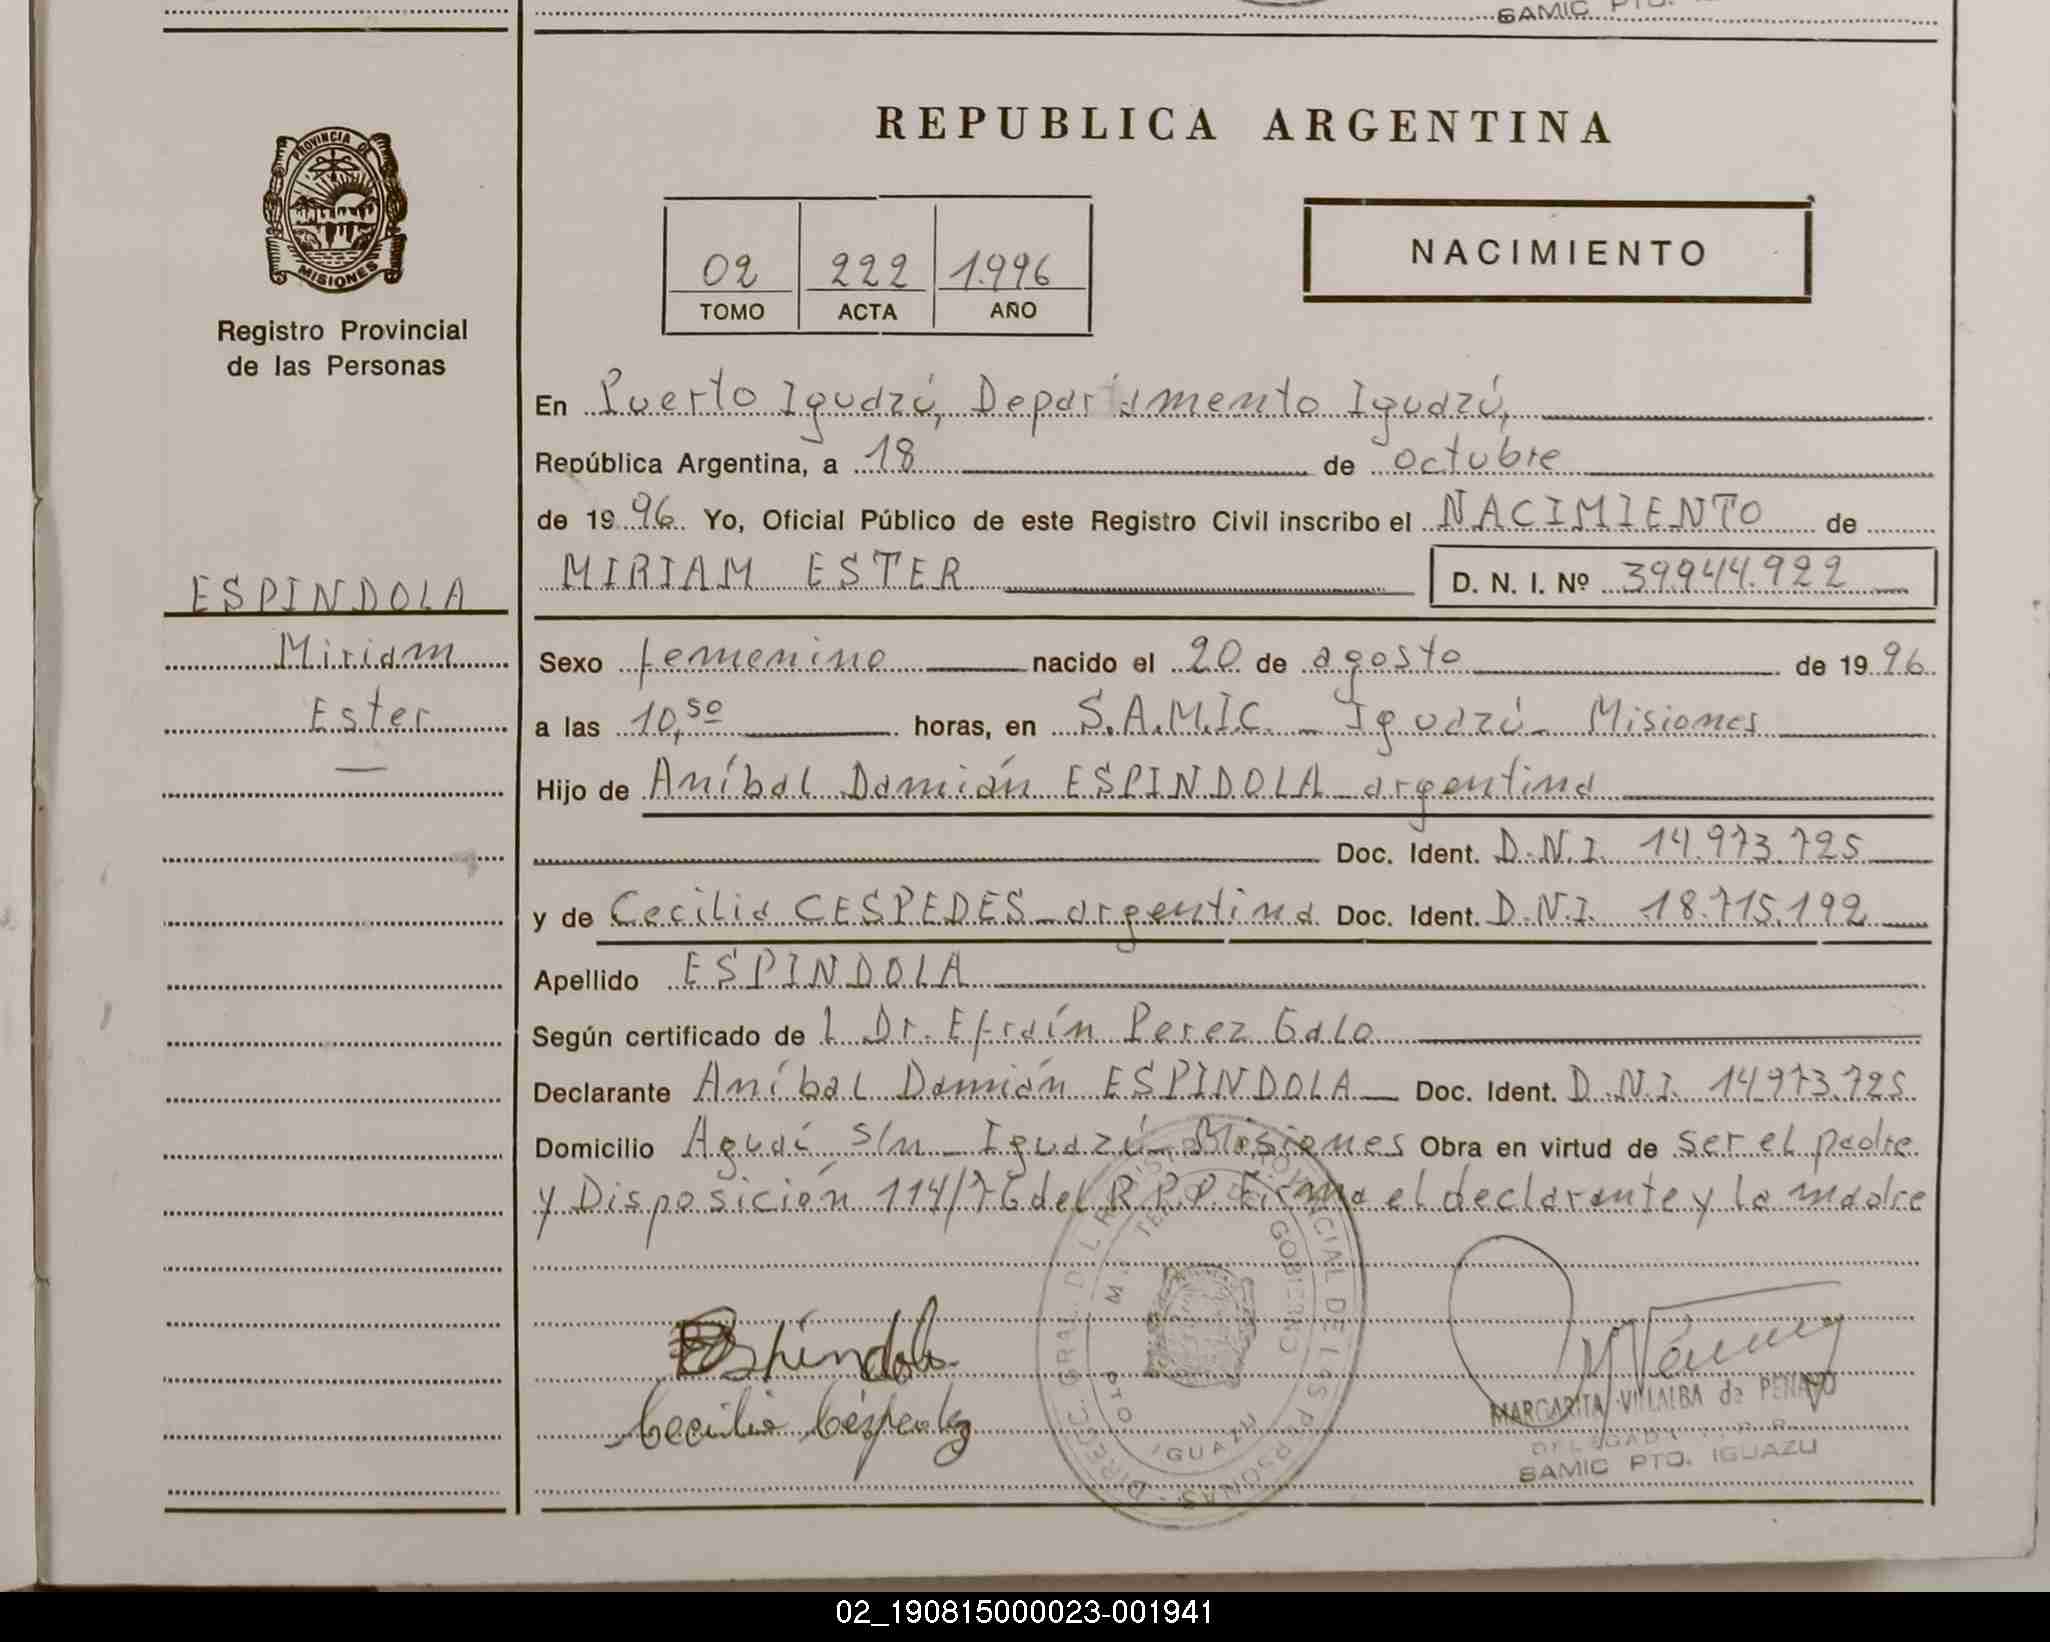 SAMIC PTO.
REPUBLICA ARGENTINA
PROVINCIA DE
MISIONES
Registro Provincial
de las Personas
02 222 1.996
TOMO ACTA AÑO
NACIMIENTO
En Puerto Iguazú, Departamento Iguazú,
República Argentina, a 18 de octubre
de 19 96 Yo, Oficial Público de este Registro Civil inscribo el NACIMIENTO de
MIRIAM ESTER D. N. I. Nº 39944.922
ESPINDOLA
Miriam
Ester
Sexo femenino nacido el 20 de agosto de 19 96
a las 10,50 horas, en S.A.M.I.C. - Iguazú - Misiones
Hijo de Aníbal Damián ESPINDOLA - argentina
Doc. Ident. D.N.I. 14.973.725
y de Cecilia CESPEDES - argentina Doc. Ident. D.N.I. 18.715.192
Apellido ESPINDOLA
Según certificado de l Dr. Efraín Perez Galo
Declarante Aníbal Damián ESPINDOLA Doc. Ident. D.N.I. 14973.725
Domicilio Aguaí s/n - Iguazú - Misiones Obra en virtud de ser el padre
y Disposición 114/76 del R.P.P. Firma el declarante y la madre
Espíndola
Cecilia Céspedes
DIREC. GRAL DEL REGISTRO PROVINCIAL DE LAS PERSONAS
GOBIERNO
PTO IGUAZU
MARGARITA VILLALBA de PENAYO
SAMIC PTO. IGUAZU
02_190815000023-001941